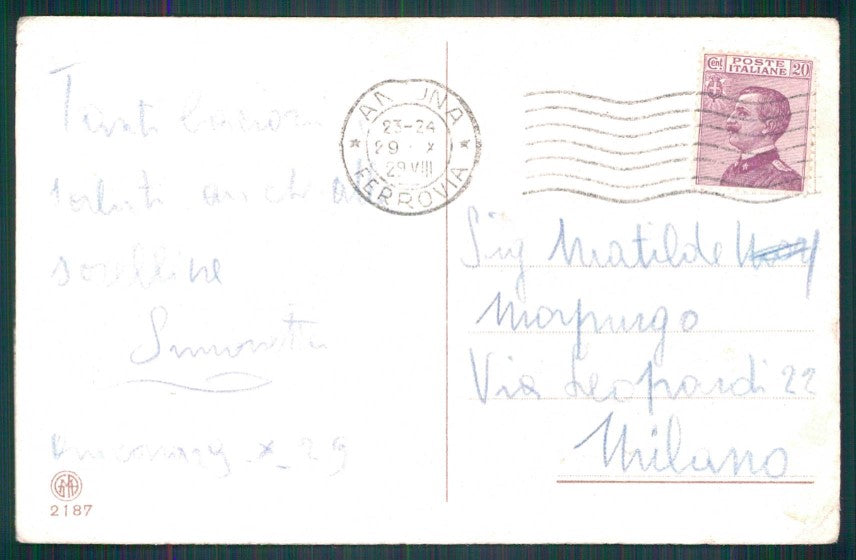 Tanti bacioni
saluti anche alle
sorelline
Simonetta
Ancona 29_X_29
2187
ANCONA
23-24
29 X
29 VIII
FERROVIA
Cent. POSTE ITALIANE 20
Sig Matilde
Morpurgo
Via Leopardi 22
Milano